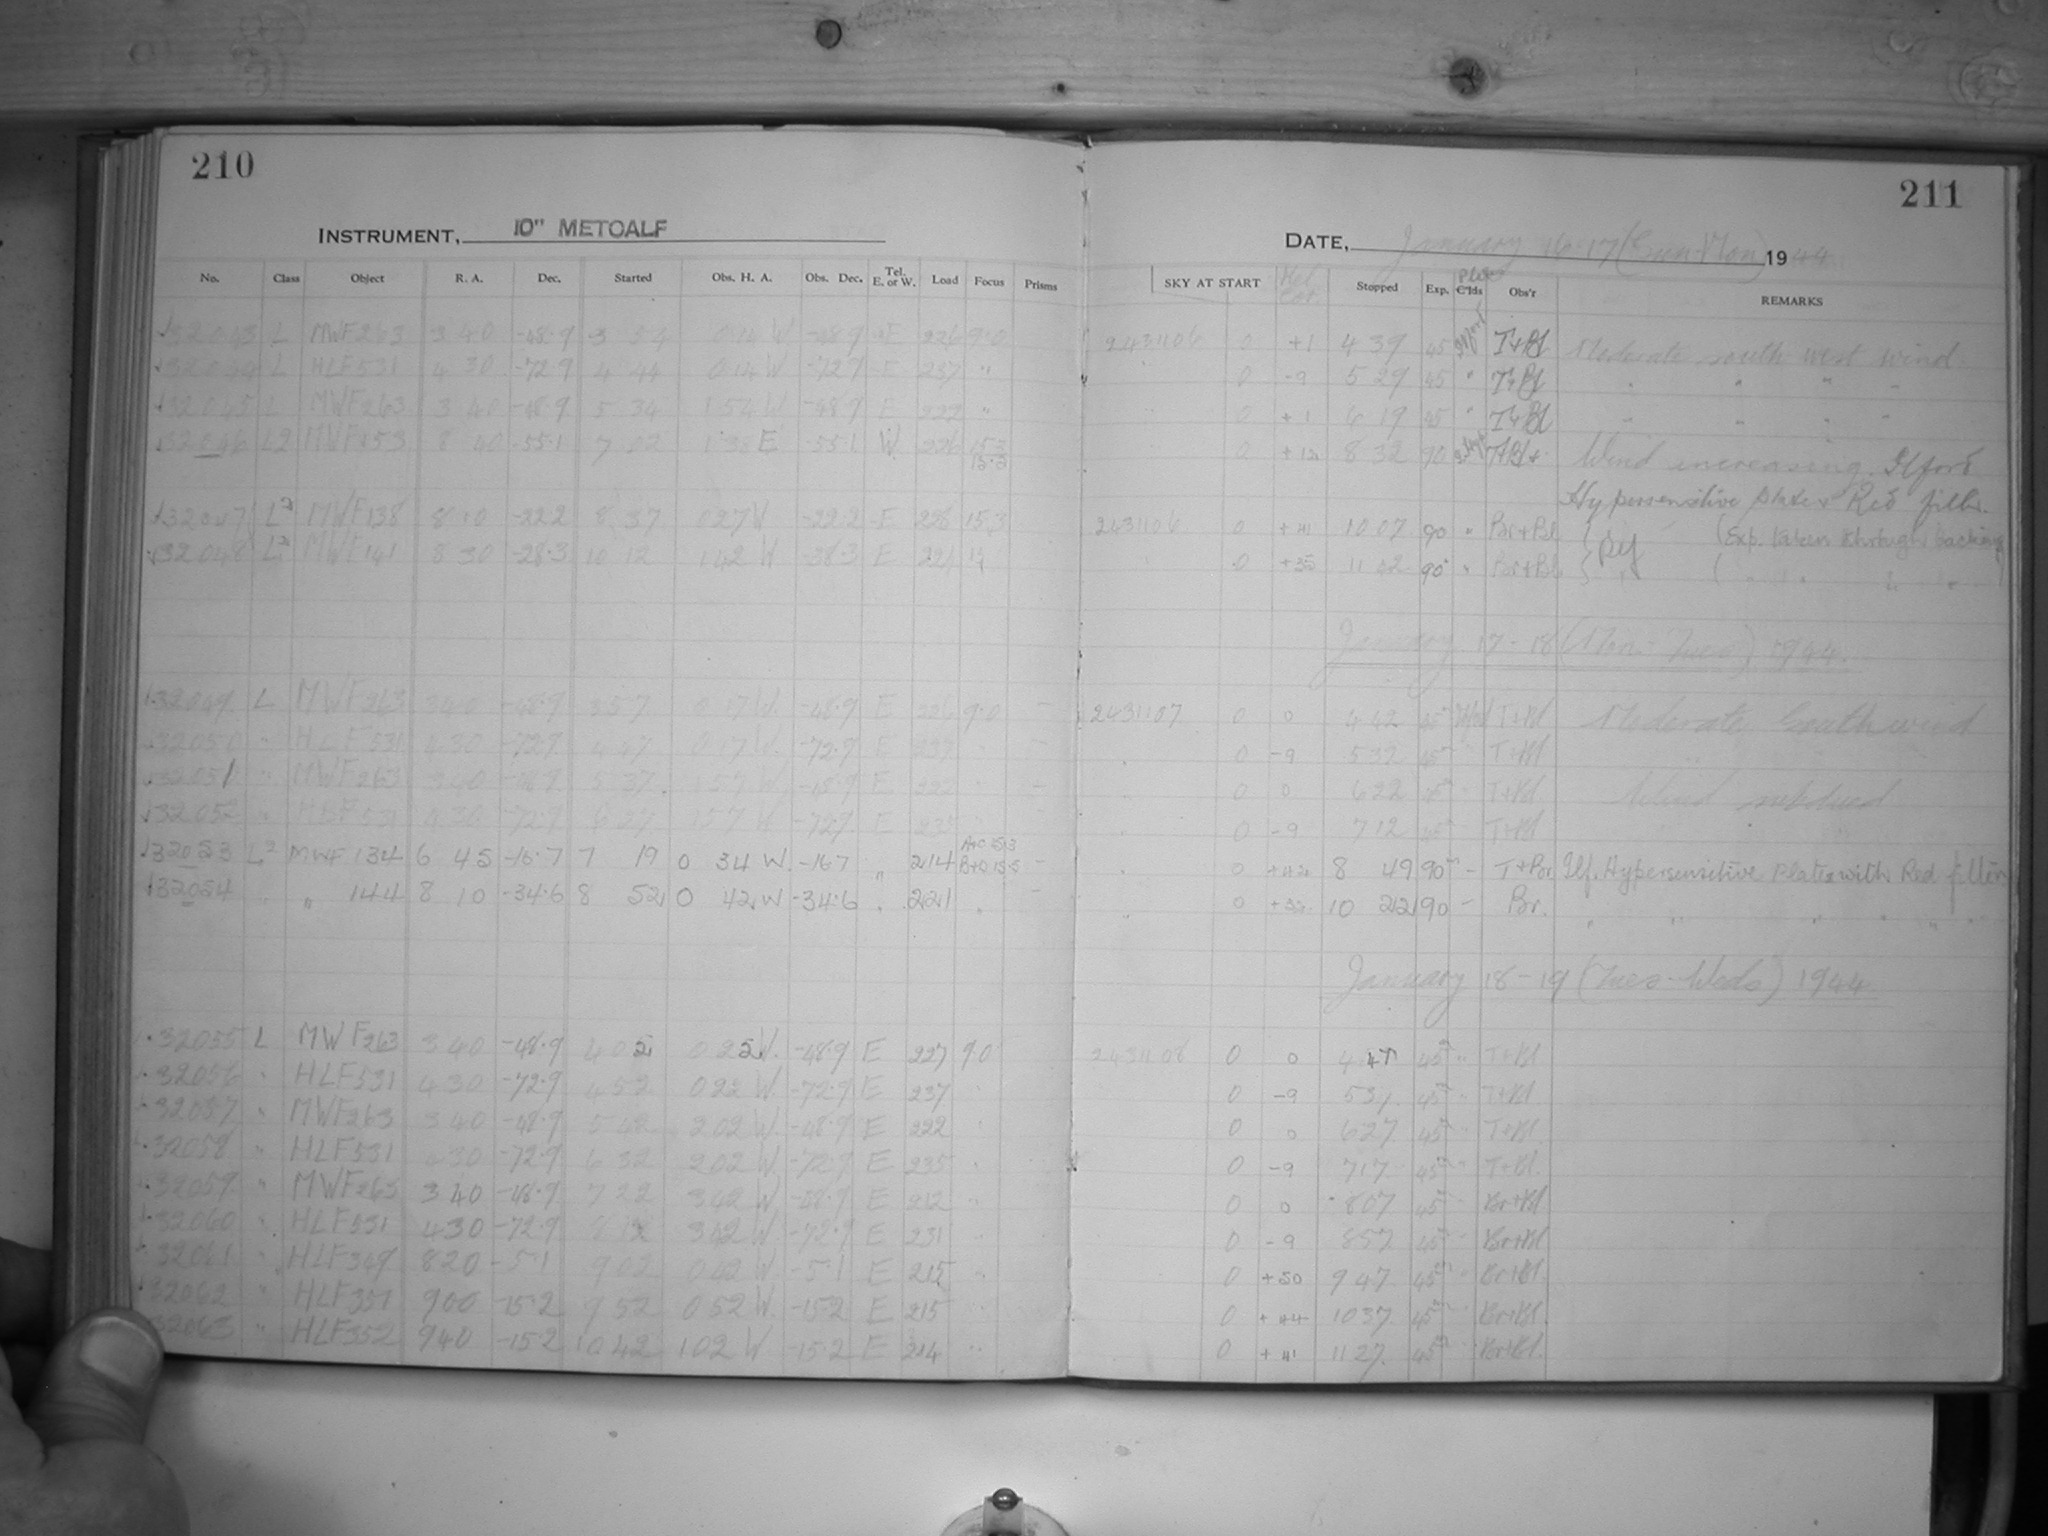 210
INSTRUMENT, 10" METCALF
No. Class Object R. A. Dec. Started Obs. H. A. Obs. Dec. Tel. E. or W. Load Focus Prisms
32043 L MWF263 3 40 -48.9 3 54 0 14 W -48.9 E 226 9.0
32044 L HLF531 4 30 -72.9 4 44 0 14 W -72.9 E 237 "
32045 L MWF263 3 40 -48.9 5 34 1 54 W -48.9 E 222 "
32046 L2 8 40 -55.1 7 02 E -55.1 W 226 15.3
32047 L2 MWF138 8 10 -22.2 8 37 0 27 W -22.2 E 15.3
32048 L2 MWF141 8 30 -28.3 10 12 1 42 W -28.3 E 221 "
32049 L MWF263 3 40 -48.9 3 57 0 17 W -48.9 E 226 9.0 -
32050 " HLF531 4 30 -72.9 4 47 0 17 W -72.9 E 237 -
32051 " MWF263 3 40 -48.9 5 37 1 57 W -48.9 E 222 -
32052 " HLF531 4 30 -72.9 6 27 1 57 W -72.9 E 235
32053 L2 MWF 134 6 45 -16.7 7 19 0 34 W. -16.7 " 214 -
32054 " " 144 8 10 -34.6 8 52 0 42 W -34.6 " 221 " -
32055 L MWF263 3 40 -48.9 4 02 0 22 W. -48.9 E 227 9.0
32056 " HLF531 4 30 -72.9 4 52 0 22 W. -72.9 E 237 "
32057 " MWF263 3 40 -48.9 5 42 2 02 W. -48.9 E 222 "
32058 " HLF531 4 30 -72.9 6 32 2 02 W -72.9 E 235 "
32059 " MWF263 3 40 -48.9 7 22 3 42 W -48.9 E 212 "
32060 " HLF531 4 30 -72.9 8 12 3 42 W -72.9 E 231 "
32061 " HLF349 8 20 -5.1 9 02 0 42 W -5.1 E 215 "
32062 " HLF351 9 00 -15.2 9 52 0 52 W. -15.2 E 215 "
32063 " HLF352 9 40 -15.2 10 42 1 02 W -15.2 E 214 "
211
DATE, January 16-17 (Sun-Mon) 1944
SKY AT START Stopped Exp. Plates C'lds Obs'r REMARKS
2431106 0 +1 4 39 45 Ilford T+Bl Moderate south west wind
0 -9 5 29 45 " T+Bl " " " "
0 +1 6 19 45 " T+Bl " " " "
0 8 32 90 Wind increasing. Ilford
Hypersensitive plates Red filter.
2431106 0 +41 10 07 90 " Br+Bl (Exp. taken through backing)
0 +35 11 42 90 " Br+Bl
January 17-18 (Mon-Tues) 1944.
2431107 0 0 4 42 45 Ilford T+Bl Moderate South wind
0 -9 5 32 45 T+Bl
0 0 6 22 45 T+Bl Wind subdued
0 -9 7 12 45 T+Bl
0 8 49 90 - T+Br Ilf. Hypersensitive Plates with Red filter
0 10 22 90 - Br.
January 18-19 (Tues-Weds) 1944
2431108 0 0 4 47 45 T+Bl
0 -9 5 37 45 T+Bl
0 0 6 27 45 T+Bl
0 -9 7 17 45 T+Bl.
0 0 8 07 45 Br+Bl.
0 -9 8 57 45 Br+Bl
0 +50 9 47 45 Br+Bl.
0 +44 10 37 45 Br+Bl.
0 +41 11 27 45 Br+Bl.